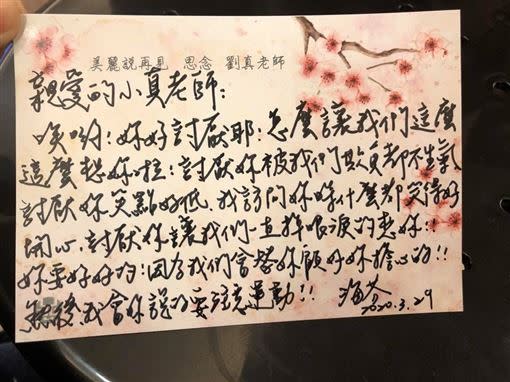 美麗說再見 思念 劉真老師
親愛的小真老師:
唉呦:妳好討厭耶:怎麼讓我們這麼
這麼想妳啦:討厭妳被我們欺負都不生氣
討厭妳笑點好低.我訪問妳時什麼都笑得好
開心.討厭妳讓我們一直掉眼淚的想妳!!
妳要好好的:因為我們會替妳顧好妳擔心的!!
然後.我會妳說的要注意運動!! 海芬
2020.3.29